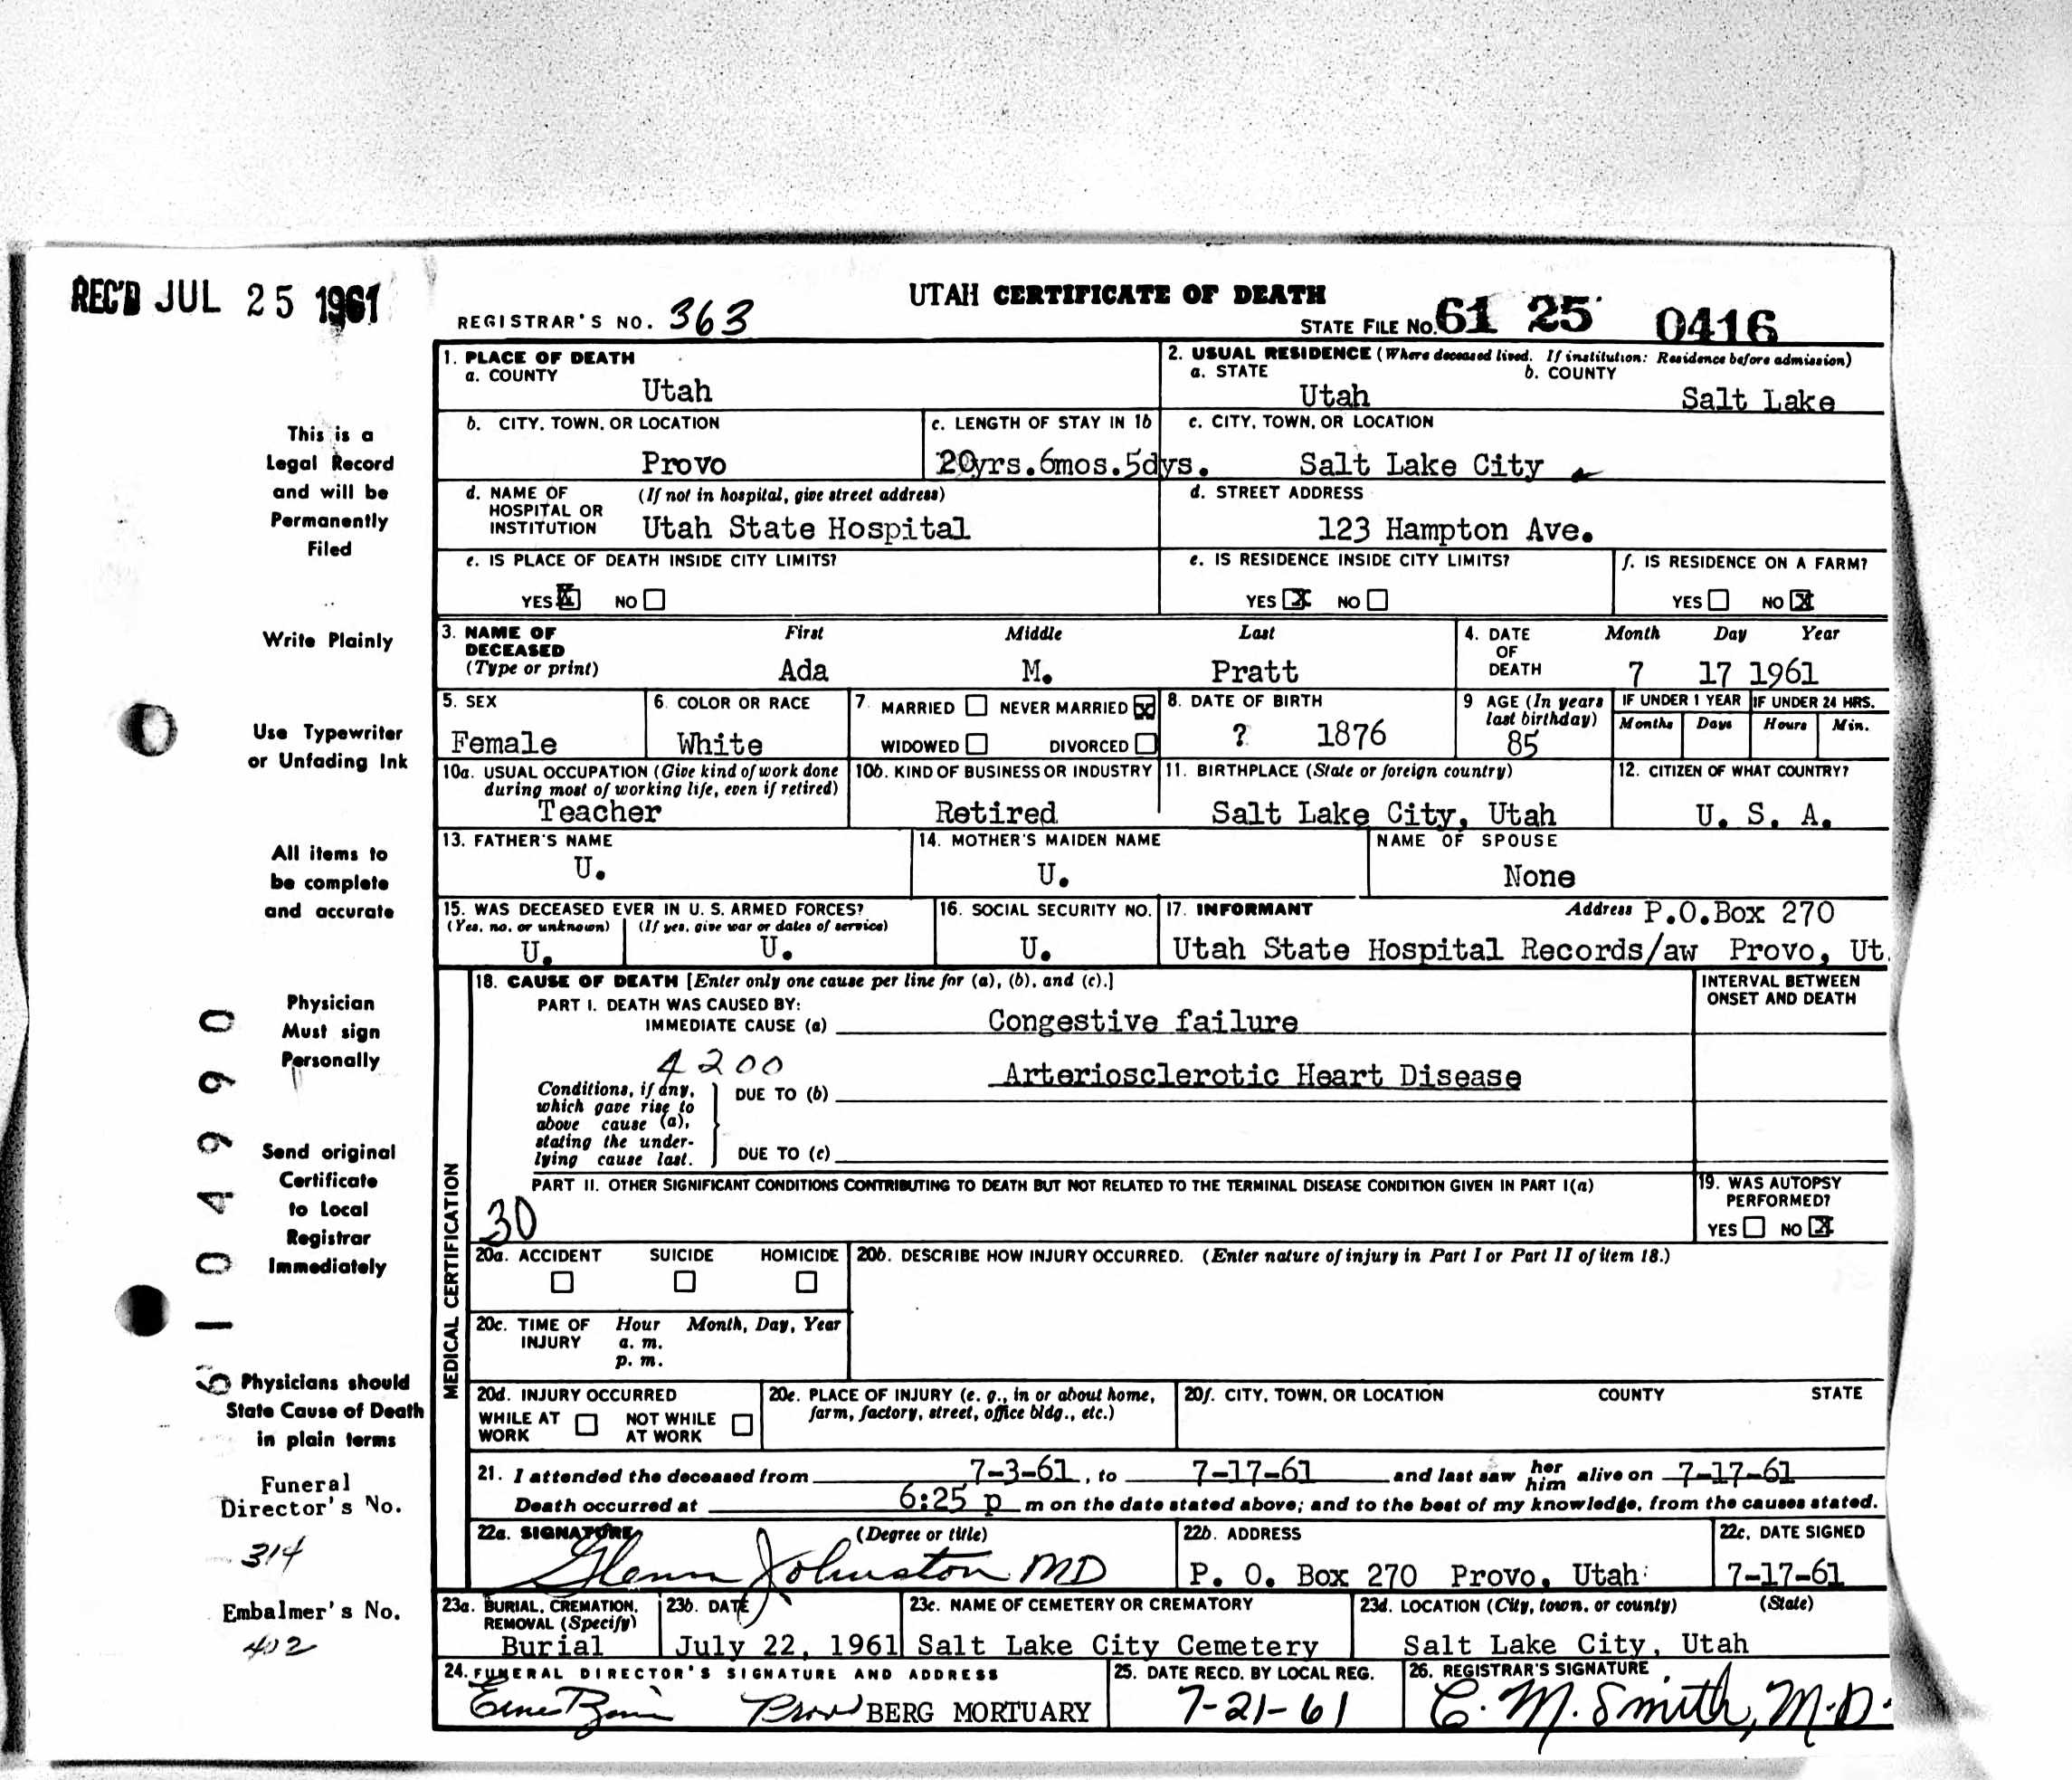 REC'D JUL 25 1961
UTAH CERTIFICATE OF DEATH
REGISTRAR'S NO. 363
STATE FILE NO. 61 25 0416
1. PLACE OF DEATH
a. COUNTY
Utah
2. USUAL RESIDENCE (Where deceased lived. If institution: Residence before admission)
a. STATE
b. COUNTY
Utah
Salt Lake
b. CITY, TOWN, OR LOCATION
Provo
c. LENGTH OF STAY IN 1b
20yrs.6mos.5dys.
c. CITY, TOWN, OR LOCATION
Salt Lake City
d. NAME OF HOSPITAL OR INSTITUTION
(If not in hospital, give street address)
Utah State Hospital
d. STREET ADDRESS
123 Hampton Ave.
e. IS PLACE OF DEATH INSIDE CITY LIMITS?
YES X NO
e. IS RESIDENCE INSIDE CITY LIMITS?
YES X NO
f. IS RESIDENCE ON A FARM?
YES NO X
3. NAME OF DECEASED
(Type or print)
First Middle Last
Ada M. Pratt
4. DATE OF DEATH
Month Day Year
7 17 1961
5. SEX
Female
6. COLOR OR RACE
White
7. MARRIED NEVER MARRIED X
WIDOWED DIVORCED
8. DATE OF BIRTH
? 1876
9 AGE (In years last birthday)
85
IF UNDER 1 YEAR
Months Days
IF UNDER 24 HRS.
Hours Min.
10a. USUAL OCCUPATION (Give kind of work done during most of working life, even if retired)
Teacher
10b. KIND OF BUSINESS OR INDUSTRY
Retired
11. BIRTHPLACE (State or foreign country)
Salt Lake City, Utah
12. CITIZEN OF WHAT COUNTRY?
U. S. A.
13. FATHER'S NAME
U.
14. MOTHER'S MAIDEN NAME
U.
NAME OF SPOUSE
None
15. WAS DECEASED EVER IN U. S. ARMED FORCES?
(Yes, no, or unknown) (If yes, give war or dates of service)
U. U.
16. SOCIAL SECURITY NO.
U.
17. INFORMANT
Address P.O.Box 270
Utah State Hospital Records/aw Provo, Ut.
MEDICAL CERTIFICATION
18. CAUSE OF DEATH [Enter only one cause per line for (a), (b), and (c).]
INTERVAL BETWEEN ONSET AND DEATH
PART I. DEATH WAS CAUSED BY:
IMMEDIATE CAUSE (a) Congestive failure
4200
Conditions, if any, which gave rise to above cause (a), stating the underlying cause last.
DUE TO (b) Arteriosclerotic Heart Disease
DUE TO (c)
PART II. OTHER SIGNIFICANT CONDITIONS CONTRIBUTING TO DEATH BUT NOT RELATED TO THE TERMINAL DISEASE CONDITION GIVEN IN PART I(a)
30
19. WAS AUTOPSY PERFORMED?
YES NO X
20a. ACCIDENT SUICIDE HOMICIDE
20b. DESCRIBE HOW INJURY OCCURRED. (Enter nature of injury in Part I or Part II of item 18.)
20c. TIME OF INJURY
Hour Month, Day, Year
a. m.
p. m.
20d. INJURY OCCURRED
WHILE AT WORK NOT WHILE AT WORK
20e. PLACE OF INJURY (e. g., in or about home, farm, factory, street, office bldg., etc.)
20f. CITY, TOWN, OR LOCATION COUNTY STATE
21. I attended the deceased from 7-3-61, to 7-17-61 and last saw her him alive on 7-17-61
Death occurred at 6:25 p m on the date stated above; and to the best of my knowledge, from the causes stated.
22a. SIGNATURE (Degree or title)
Glenn Johnston MD
22b. ADDRESS
P. O. Box 270 Provo, Utah
22c. DATE SIGNED
7-17-61
23a. BURIAL, CREMATION, REMOVAL (Specify)
Burial
23b. DATE
July 22, 1961
23c. NAME OF CEMETERY OR CREMATORY
Salt Lake City Cemetery
23d. LOCATION (City, town, or county) (State)
Salt Lake City, Utah
24. FUNERAL DIRECTOR'S SIGNATURE AND ADDRESS
BERG MORTUARY
25. DATE RECD. BY LOCAL REG.
7-21-61
26. REGISTRAR'S SIGNATURE
C. M. Smith, M.D.
This is a
Legal Record
and will be
Permanently
Filed
Write Plainly
Use Typewriter
or Unfading Ink
All items to
be complete
and accurate
Physician
Must sign
Personally
Send original
Certificate
to Local
Registrar
Immediately
Physicians should
State Cause of Death
in plain terms
Funeral
Director's No.
314
Embalmer's No.
402
6104990